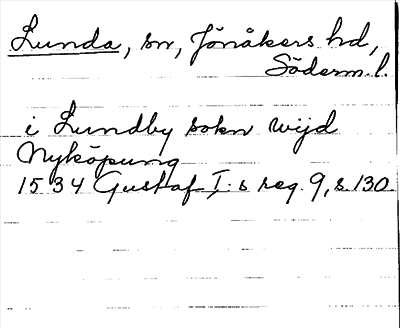 Lunda, sn, Jönåkers hd,
Söderm. l.
i Lundby sokn wijd
Nyköpung
1534 Gustaf I:s reg. 9, s 130